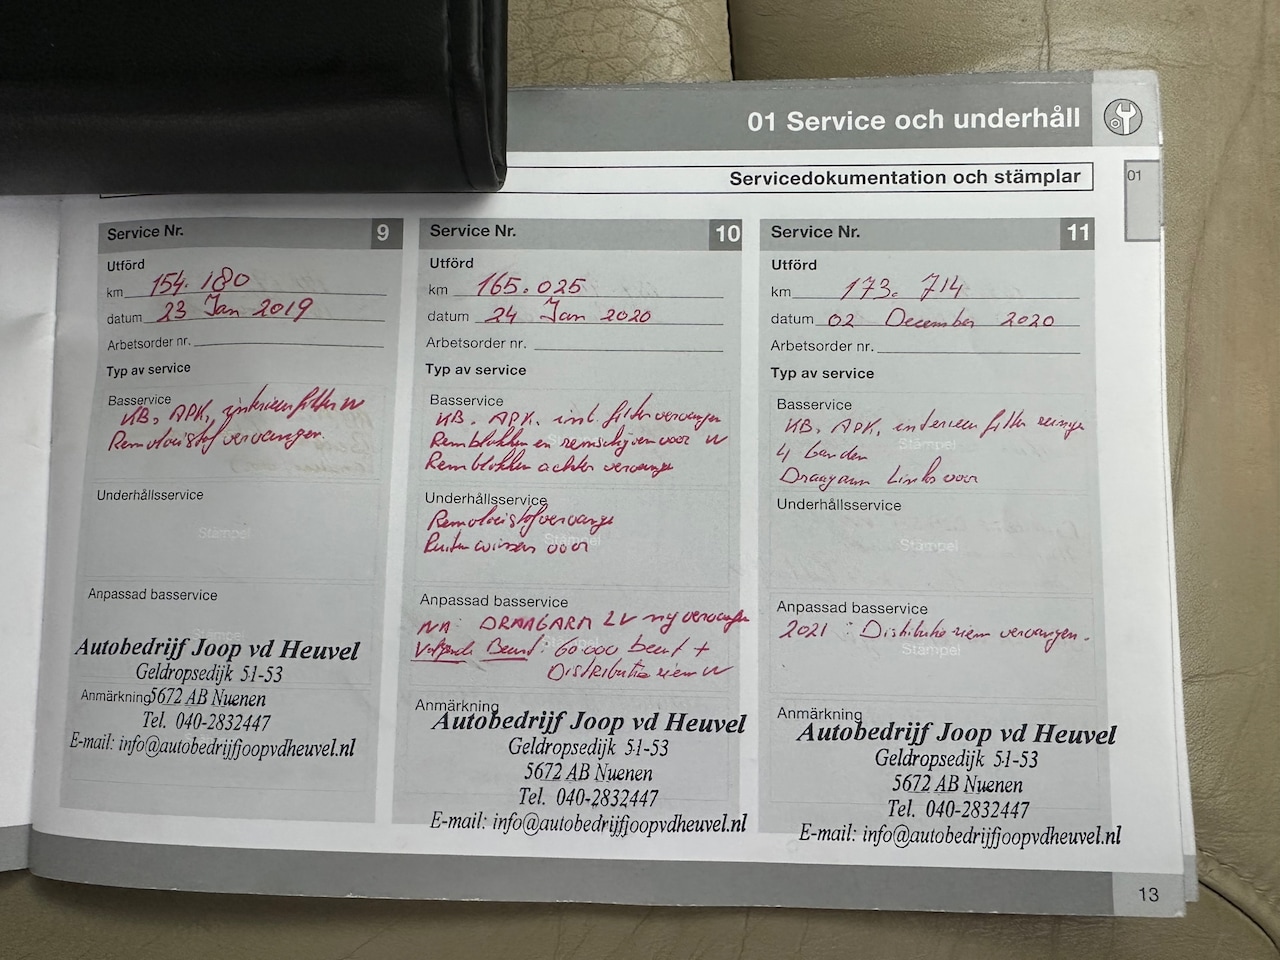 01 Service och underhåll
Servicedokumentation och stämplar
01
Service Nr. 9
Utförd
km 154.180
datum 23 Jan 2019
Arbetsorder nr.
Typ av service
Basservice
KB, APK, interieurfilter
Remvloeistof vervangen.
Underhållsservice
Stämpel
Anpassad basservice
Stämpel
Autobedrijf Joop vd Heuvel
Geldropsedijk 51-53
Anmärkning 5672 AB Nuenen
Tel. 040-2832447
E-mail: info@autobedrijfjoopvdheuvel.nl
Service Nr. 10
Utförd
km 165.025
datum 24 Jan 2020
Arbetsorder nr.
Typ av service
Basservice
KB. APK. int. filter vervangen
Remblokken en remschijven voor
Remblokken achter vervangen
Underhållsservice
Remvloeistof vervangen
Stämpel
Ruitenwissers voor
Anpassad basservice
DRAAGARM LV vervangen
Stämpel
Volgende Beurt: 60000 beurt +
Distributieriem
Anmärkning
Autobedrijf Joop vd Heuvel
Geldropsedijk 51-53
5672 AB Nuenen
Tel. 040-2832447
E-mail: info@autobedrijfjoopvdheuvel.nl
Service Nr. 11
Utförd
km 173.714
datum 02 December 2020
Arbetsorder nr.
Typ av service
Basservice
KB, APK, interieur filter
Stämpel
4 banden
Draagarm Links voor
Underhållsservice
Stämpel
Anpassad basservice
2021 : Distributieriem vervangen.
Stämpel
Anmärkning
Autobedrijf Joop vd Heuvel
Geldropsedijk 51-53
5672 AB Nuenen
Tel. 040-2832447
E-mail: info@autobedrijfjoopvdheuvel.nl
13